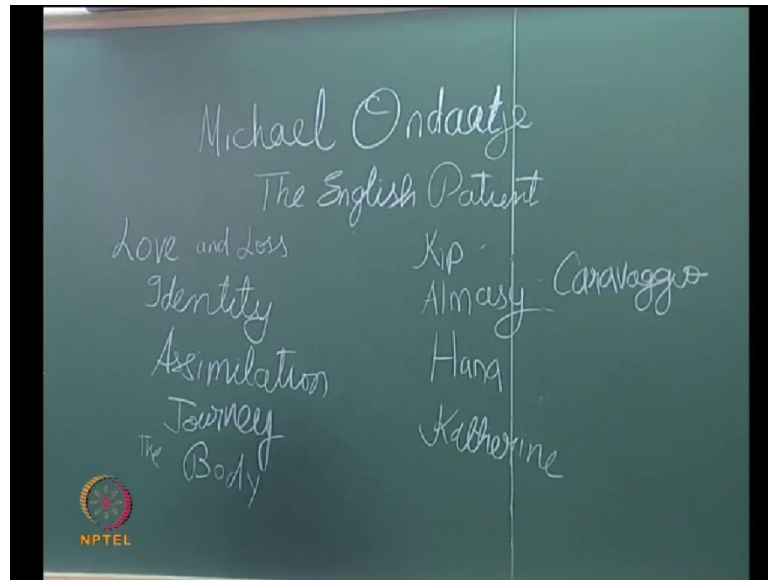 Michael Ondaatje
The English Patient
Love and Loss
Identity
Assimilation
Journey
The Body
Kip -
Almasy - Caravaggio
Hana
Katherine
NPTEL